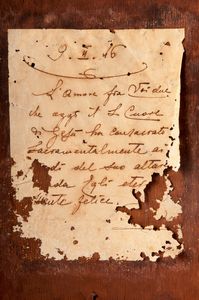 9. II. 16
L'Amore fra Voi due
che oggi il S. Cuore
di Gesù ha consacrato
Sacramentalmente ai
di del suo altar
da Egli eter
ente felice.